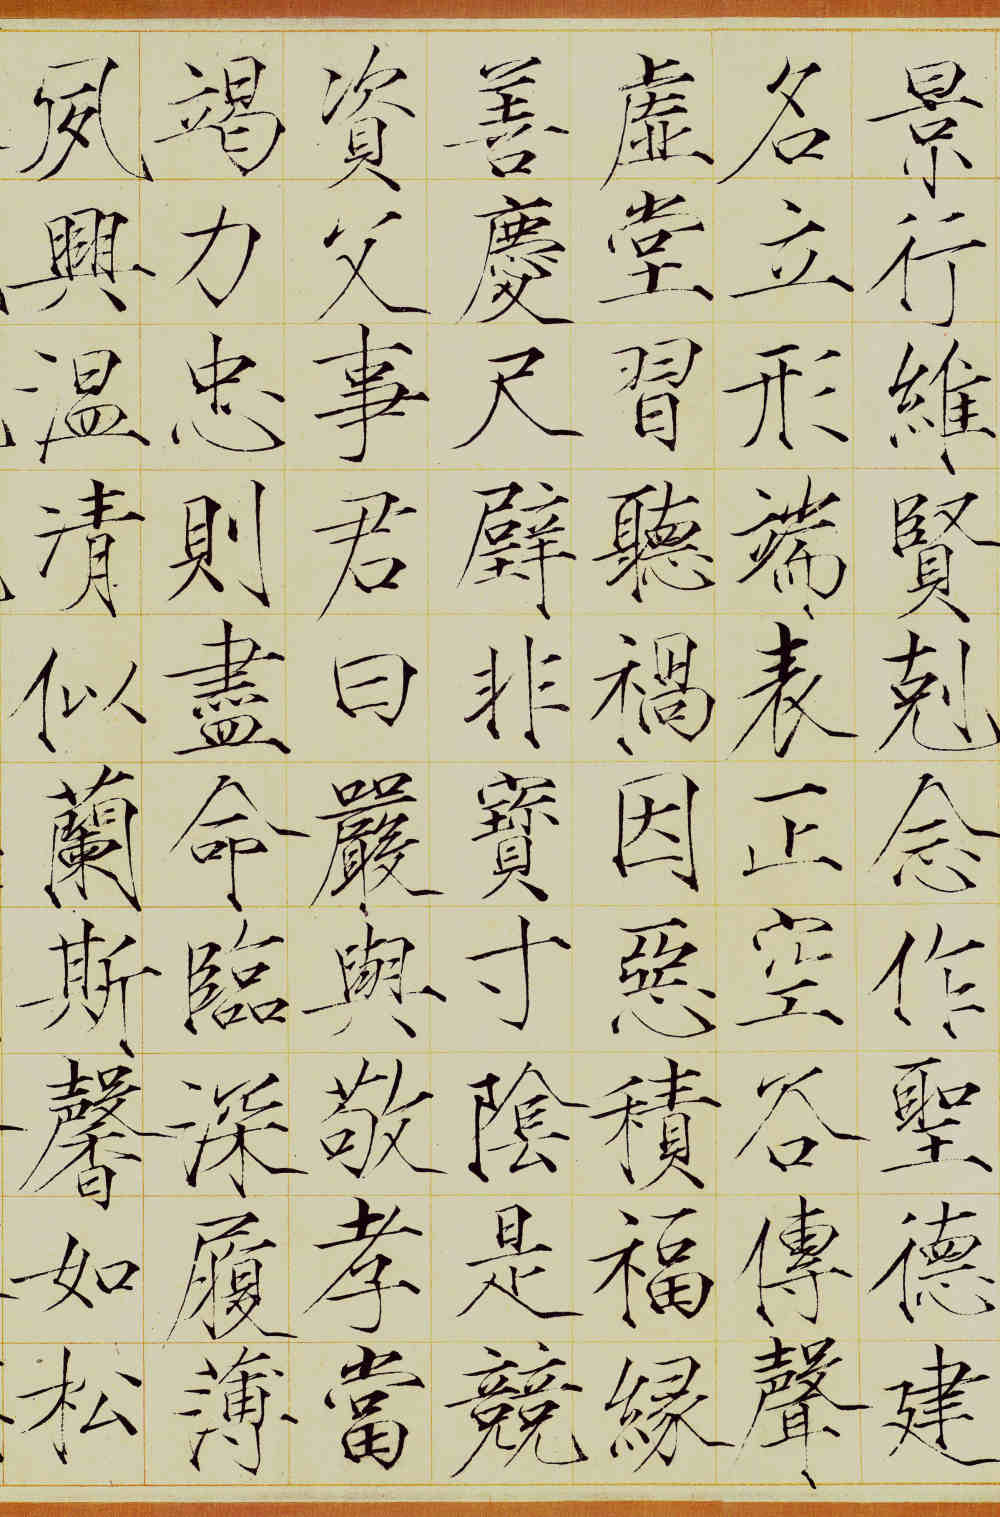 景行維賢剋念作聖德建
名立形端表正空谷傳聲
虛堂習聽禍因惡積福緣
善慶尺璧非寶寸陰是競
資父事君曰嚴與敬孝當
竭力忠則盡命臨深履薄
夙興温清似蘭斯馨如松